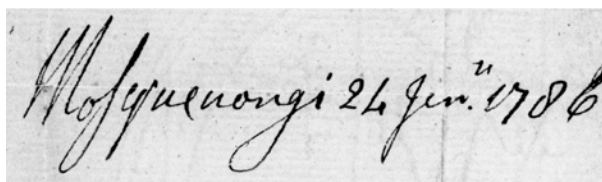 Mosquenongi 24 Jenn. 1786